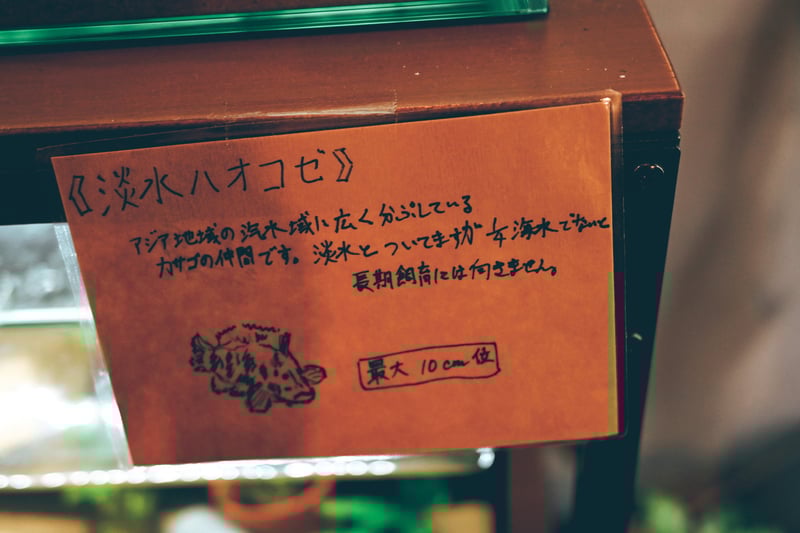 《淡水ハオコゼ》
アジア地域の汽水域に広く分ぷしている
カサゴの仲間です。淡水とついてますが 1/4海水でないと
長期飼育には向きません。
最大 10cm位